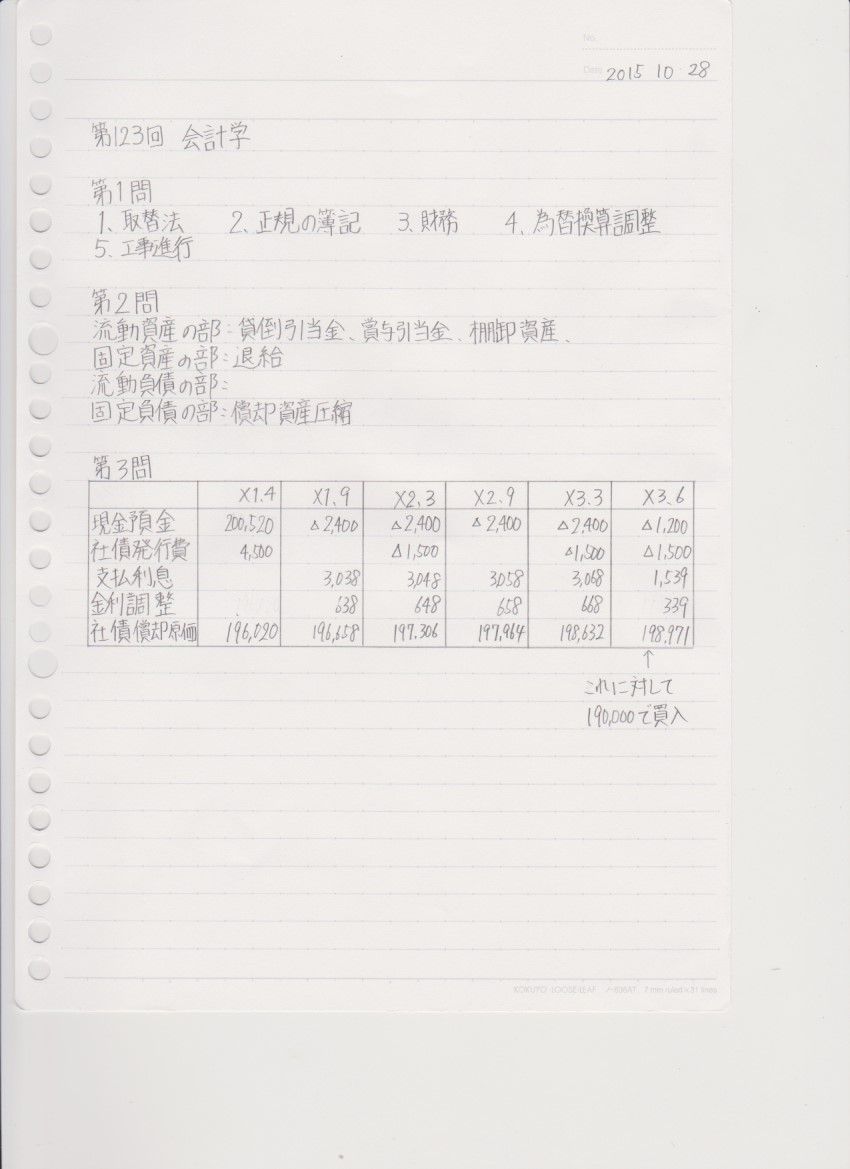 No.
Date 2015 10 28
第123回 会計学
第1問
1、取替法 2、正規の簿記 3、財務 4、為替換算調整
5、工事進行
第2問
流動資産の部:貸倒引当金、賞与引当金、棚卸資産、
固定資産の部:退給
流動負債の部:
固定負債の部:償却資産圧縮
第3問
X1.4 X1.9 X2.3 X2.9 X3.3 X3.6
現金預金 200,520 △2,400 △2,400 △2,400 △2,400 △1,200
社債発行費 4,500 △1,500 △1,500 △1,500
支払利息 3,038 3,048 3,058 3,068 1,539
金利調整 638 648 658 668 339
社債償却原価 196,020 196,658 197,306 197,964 198,632 198,971
↑
これに対して
190,000で買入
KOKUYO LOOSE-LEAF ノ-836AT 7 mm ruled×31 lines